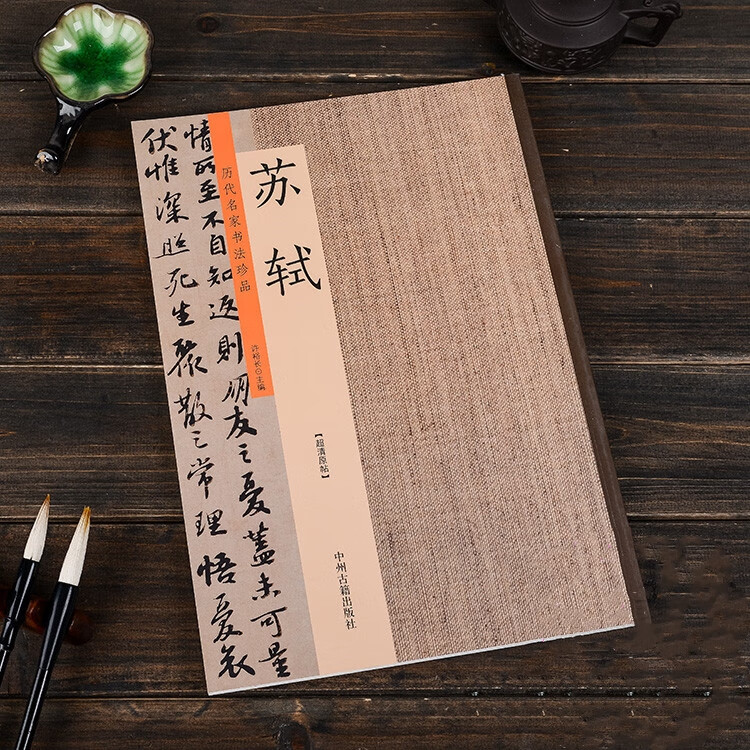 情所至不自知返則朋友之憂蓋未可量
伏惟深照死生聚散之常理悟憂哀
历代名家书法珍品
许裕长⊙主编
苏轼
【超清原帖】
中州古籍出版社